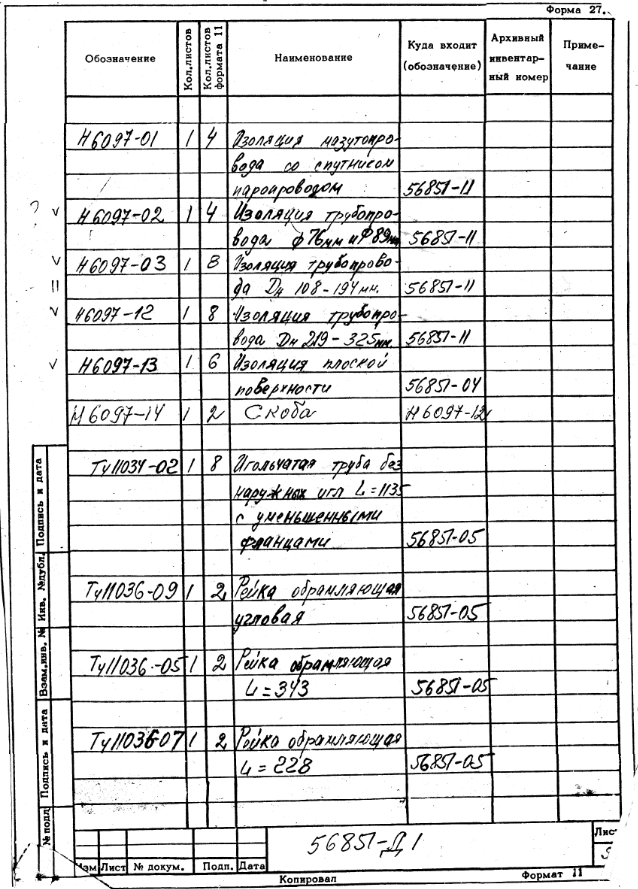 Форма 27.
Обозначение Кол.листов Кол.листов формата 11 Наименование Куда входит (обозначение) Архивный инвентарный номер Примечание
Н6097-01 1 4 Изоляция мазутопро-
вода со спутником
паропроводом 56851-11
? v Н6097-02 1 4 Изоляция трубопро-
вода ф76мм и ф89мм 56851-11
v Н6097-03 1 8 Изоляция трубопрово-
да Дн 108-194мм. 56851-11
v Н6097-12 1 8 Изоляция трубопро-
вода Дн 219-325мм. 56851-11
v Н6097-13 1 6 Изоляция плоской
поверхности 56851-04
Н6097-14 1 2 Скоба Н6097-12
Ту11034-02 1 8 Игольчатая труба без
наружных игл L=1135
с уменьшенными
фланцами 56851-05
Ту11036-09 1 2 Рейка обрамляющая
угловая 56851-05
Ту11036-05 1 2 Рейка обрамляющая
L=343 56851-05
Ту11036-07 1 2 Рейка обрамляющая
L=228 56851-05
Подпись и дата
Инв. №дубл.
Взам.инв. №
Подпись и дата
№ подл
56851-Д1
Лис
Изм Лист № докум. Подп. Дата
Копировал Формат 11